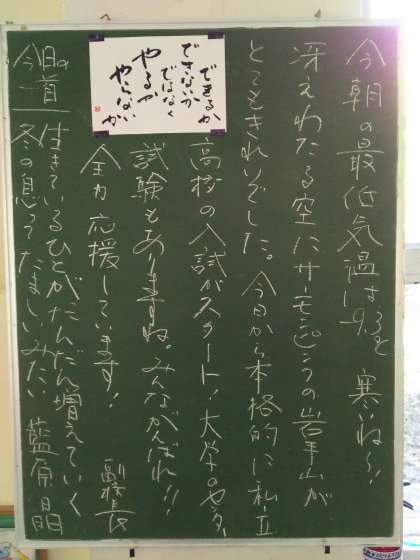 今朝の最低気温は-9.3℃ 寒いね〜!!
冴えわたる空にサーモンピンクの岩手山が
とてもきれいでした。今日から本格的に私立
高校の入試がスタート!大学のセンター
試験もありますね。みんながんばれ!!
全力応援しています! 副校長
できるか
できないか
ではなく
やるか
やらないか
今日の一首
生きているひとがだんだん増えていく
冬の息ってたましいみたい 藍原日明